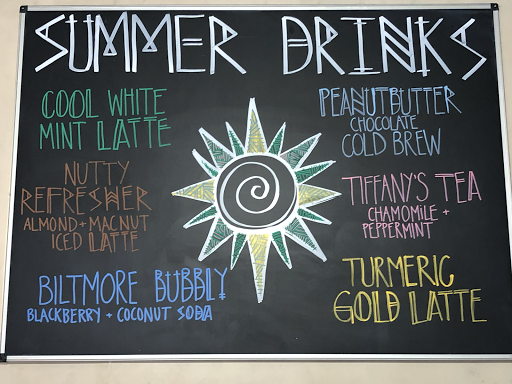 SUMMER DRINKS
COOL WHITE
MINT LATTE
NUTTY
REFRESHER
ALMOND + MACNUT
ICED LATTE
BILTMORE BUBBLY
BLACKBERRY + COCONUT SODA
PEANUTBUTTER
CHOCOLATE
COLD BREW
TIFFANY'S TEA
CHAMOMILE +
PEPPERMINT
TURMERIC
GOLD LATTE